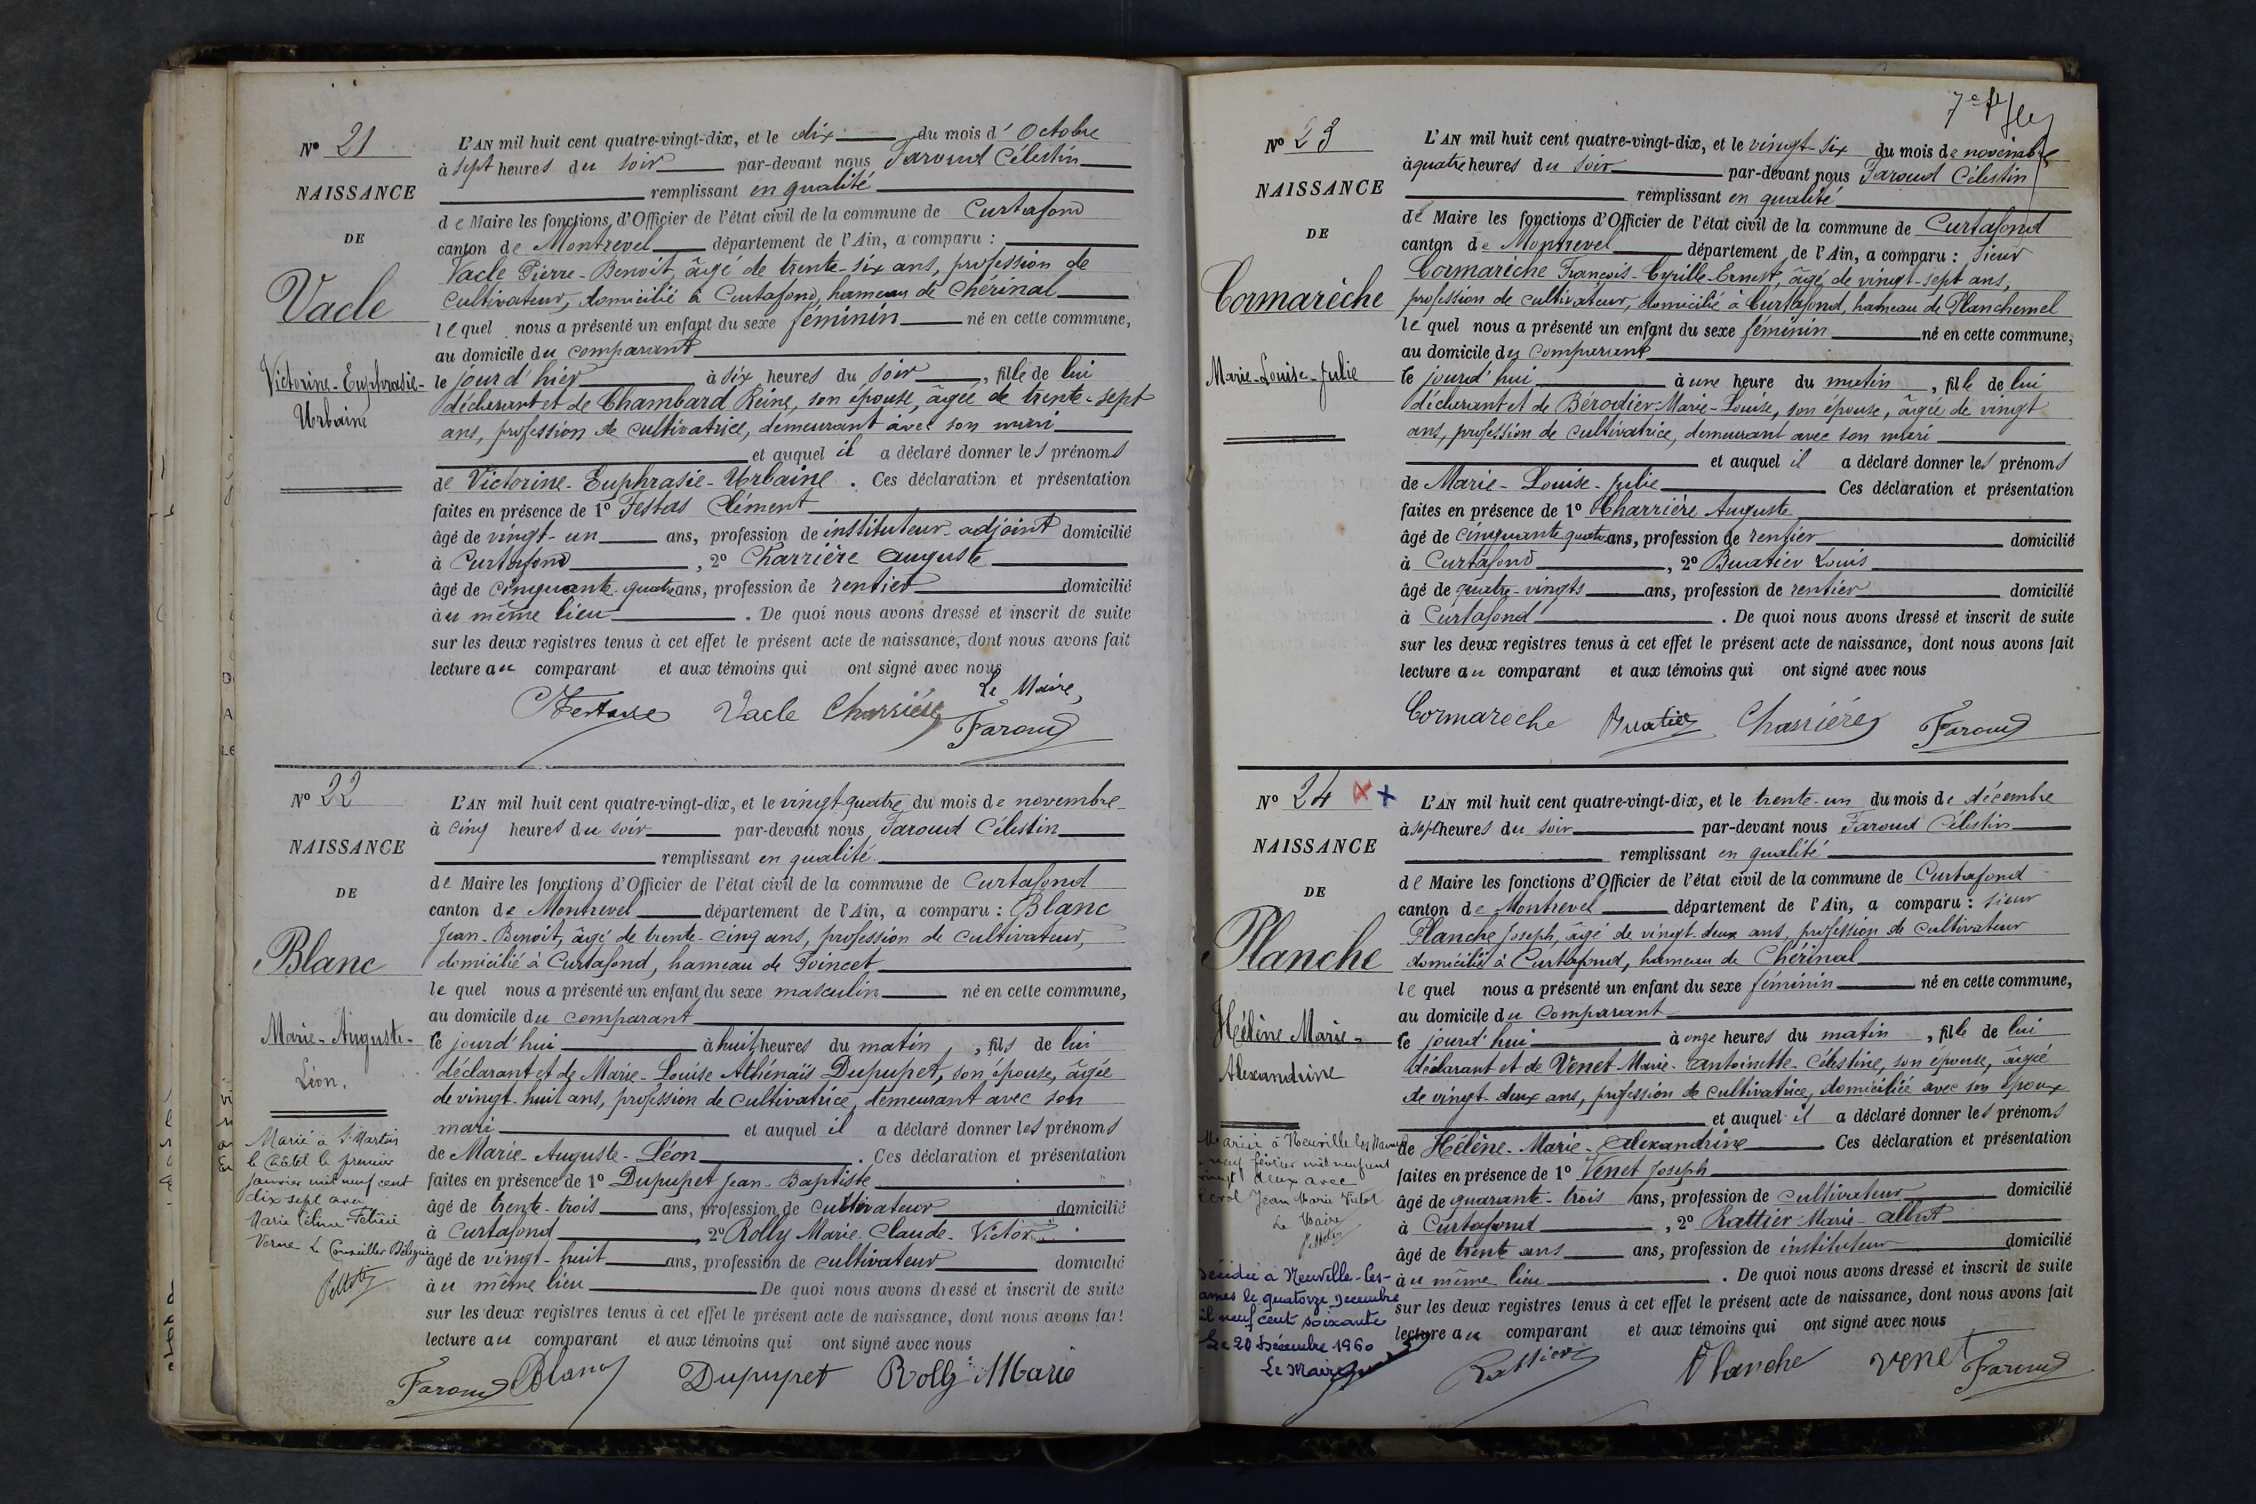 Nº 21
NAISSANCE
DE
Vacle
Victorine-Euphrasie-
Urbaine
L'AN mil huit cent quatre-vingt-dix, et le dix du mois d'Octobre
à sept heures du soir par-devant nous Faroud Célestin
remplissant en qualité
de Maire les fonctions d'Officier de l'état civil de la commune de Curtafond
canton de Montrevel département de l'Ain, a comparu :
Vacle Pierre-Benoit, âgé de trente-six ans, profession de
cultivateur, domicilié à Curtafond, hameau de Chérinal
lequel nous a présenté un enfant du sexe féminin né en cette commune,
au domicile du comparant
le jour d'hier à six heures du soir, fille de lui
déclarant et de Chambard Reine, son épouse, âgée de trente-sept
ans, profession de cultivatrice, demeurant avec son mari
et auquel il a déclaré donner les prénoms
de Victorine-Euphrasie-Urbaine. Ces déclaration et présentation
faites en présence de 1º Festas Clément
âgé de vingt-un ans, profession de instituteur-adjoint domicilié
à Curtafond, 2º Charrière Auguste
âgé de cinquante-quatre ans, profession de rentier domicilié
au même lieu. De quoi nous avons dressé et inscrit de suite
sur les deux registres tenus à cet effet le présent acte de naissance, dont nous avons fait
lecture au comparant et aux témoins qui ont signé avec nous
Le Maire,
Vacle Charrière
Faroud
Nº 22
NAISSANCE
DE
Blanc
Marie-Auguste-
Léon.
Marié à St Martin
le Châtel le premier
janvier mil neuf cent
dix sept avec
Marie Céline Félicie
Verne Le Conseiller Délégué
L'AN mil huit cent quatre-vingt-dix, et le vingt-quatre du mois de novembre
à cinq heures du soir par-devant nous Faroud Célestin
remplissant en qualité
de Maire les fonctions d'Officier de l'état civil de la commune de Curtafond
canton de Montrevel département de l'Ain, a comparu : Blanc
Jean-Benoit, âgé de trente-cinq ans, profession de cultivateur,
domicilié à Curtafond, hameau de Poincet
lequel nous a présenté un enfant du sexe masculin né en cette commune,
au domicile du comparant
le jourd'hui à huit heures du matin, fils de lui
déclarant et de Marie-Louise Athénaïs Dupupet, son épouse, âgée
de vingt-huit ans, profession de cultivatrice, demeurant avec son
mari et auquel il a déclaré donner les prénoms
de Marie-Auguste-Léon. Ces déclaration et présentation
faites en présence de 1º Dupupet Jean-Baptiste
âgé de trente-trois ans, profession de cultivateur domicilié
à Curtafond, 2º Rolly Marie-Claude-Victor
âgé de vingt-huit ans, profession de cultivateur domicilié
au même lieu De quoi nous avons dressé et inscrit de suite
sur les deux registres tenus à cet effet le présent acte de naissance, dont nous avons fait
lecture au comparant et aux témoins qui ont signé avec nous
Faroud Blanc Dupupet Rolly Marie
7e
Nº 23
NAISSANCE
DE
Cormarèche
Marie-Louise-Julie
L'AN mil huit cent quatre-vingt-dix, et le vingt-six du mois de novembre
à quatre heures du soir par-devant nous Faroud Célestin
remplissant en qualité
de Maire les fonctions d'Officier de l'état civil de la commune de Curtafond
canton de Montrevel département de l'Ain, a comparu : sieur
Cormarèche François-Cyrille-Ernest, âgé de vingt-sept ans,
profession de cultivateur, domicilié à Curtafond, hameau de Planchemel
lequel nous a présenté un enfant du sexe féminin né en cette commune,
au domicile du comparant
le jourd'hui à une heure du matin, fille de lui
déclarant et de Bérodier Marie-Louise, son épouse, âgée de vingt
ans, profession de cultivatrice, demeurant avec son mari
et auquel il a déclaré donner les prénoms
de Marie-Louise-Julie Ces déclaration et présentation
faites en présence de 1º Charrière Auguste
âgé de cinquante quatre ans, profession de rentier domicilié
à Curtafond, 2º Buatier Louis
âgé de quatre-vingts ans, profession de rentier domicilié
à Curtafond. De quoi nous avons dressé et inscrit de suite
sur les deux registres tenus à cet effet le présent acte de naissance, dont nous avons fait
lecture au comparant et aux témoins qui ont signé avec nous
Cormareche Buatier Charrière Faroud
Nº 24 x +
NAISSANCE
DE
Planche
Hélène Marie-
Alexandrine
Mariée à Neuville les Dames
neuf février mil neuf cent
vingt deux avec
Jean Marie Vital
Le Maire
Décédée à Neuville-les-
Dames le quatorze Decembre
mil neuf cent soixante
Le 20 Décembre 1960
Le Maire
L'AN mil huit cent quatre-vingt-dix, et le trente-un du mois de décembre
à sept heures du soir par-devant nous Faroud Célestin
remplissant en qualité
de Maire les fonctions d'Officier de l'état civil de la commune de Curtafond
canton de Montrevel département de l'Ain, a comparu : sieur
Planche Joseph, âgé de vingt-deux ans, profession de cultivateur
domicilié à Curtafond, hameau de Chérinal
lequel nous a présenté un enfant du sexe féminin né en cette commune,
au domicile du comparant
le jourd'hui à onze heures du matin, fille de lui
déclarant et de Venet Marie-Antoinette-Célestine, son épouse, âgée
de vingt-deux ans, profession de cultivatrice, domiciliée avec son époux
et auquel il a déclaré donner les prénoms
de Hélène-Marie-Alexandrine Ces déclaration et présentation
faites en présence de 1º Venet Joseph
âgé de quarante-trois ans, profession de cultivateur domicilié
à Curtafond, 2º Rattier Marie-Albert
âgé de trente ans ans, profession de instituteur domicilié
au même lieu. De quoi nous avons dressé et inscrit de suite
sur les deux registres tenus à cet effet le présent acte de naissance, dont nous avons fait
lecture au comparant et aux témoins qui ont signé avec nous
Rattier Planche Venet Faroud